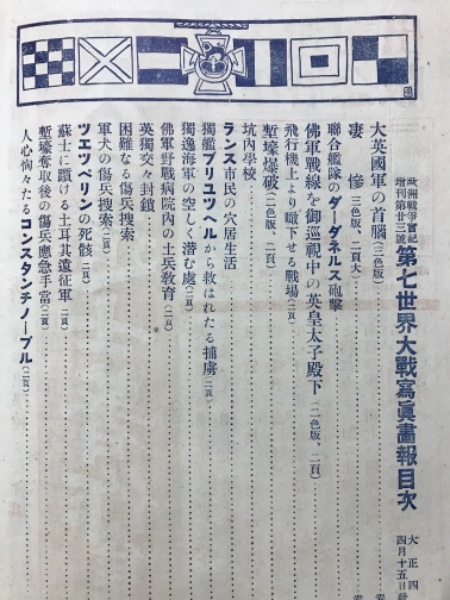 歐洲戰爭實記
增刊第廿三號
第七世界大戰寫眞畫報目次
大正四
四月十五日
大英國軍の首腦(三色版)
凄慘(三色版、二頁大)
聯合艦隊のダーダネルス砲擊
佛軍戰線を御巡視中の英皇太子殿下(二色版、二頁)
飛行機上より瞰下せる戰場(二頁)
塹壕爆破(二色版、二頁)
坑內學校
ランス市民の穴居生活
獨艦ブリユツヘルから救はれたる捕虜(二頁)
獨逸海軍の空しく潜む處(二頁)
佛軍野戰病院內の土兵敎育(二頁)
英獨交々封鎖
困難なる傷兵搜索
軍犬の傷兵搜索(二頁)
ツエツペリンの死骸(二頁)
蘇士に躓ける土耳其遠征軍(二頁)
塹壕奪取後の傷兵應急手當(二頁)
人心恟々たるコンスタンチノープル(二頁)